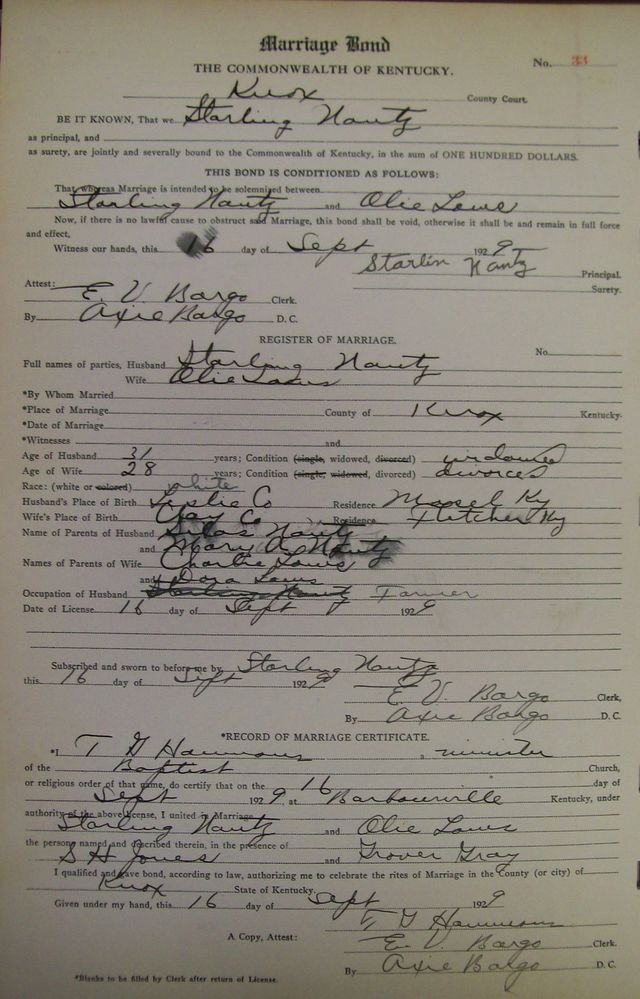 Marriage Bond
No. 33
THE COMMONWEALTH OF KENTUCKY.
Knox County Court.
BE IT KNOWN, That we Starling Nantz
as principal, and
as surety, are jointly and severally bound to the Commonwealth of Kentucky, in the sum of ONE HUNDRED DOLLARS.
THIS BOND IS CONDITIONED AS FOLLOWS:
That whereas Marriage is intended to be solemnized between
Starling Nantz and Olie Laws
Now, if there is no lawful cause to obstruct said Marriage, this bond shall be void, otherwise it shall be and remain in full force
and effect,
Witness our hands, this 16 day of Sept 1929
Starlin Nantz Principal.
Surety.
Attest: E. V. Bargo Clerk.
By Axie Bargo D. C.
REGISTER OF MARRIAGE.
No.
Full names of parties, Husband Starling Nantz
Wife Olie Laws
*By Whom Married
*Place of Marriage County of Knox Kentucky.
*Date of Marriage
*Witnesses and
Age of Husband 31 years; Condition (single, widowed, divorced) widowed
Age of Wife 28 years; Condition (single, widowed, divorced) divorced
Race: (white or colored) white
Husband's Place of Birth Leslie Co Residence Ky
Wife's Place of Birth Clay Co Residence Fletcher Ky
Name of Parents of Husband Silas Nantz
and Mary A. Nantz
Names of Parents of Wife Charlie Laws
and Dora Laws
Occupation of Husband Starling Nantz Farmer
Date of License 16 day of Sept 1929
Subscribed and sworn to before me by Starling Nantz
this 16 day of Sept 1929
E. V. Bargo Clerk,
By Axie Bargo D. C.
*RECORD OF MARRIAGE CERTIFICATE.
*I T G Hammons, minister
of the Baptist Church,
or religious order of that name, do certify that on the 16 day of
Sept 1929, at Barbourville Kentucky, under
authority of the above license, I united in Marriage
Starling Nantz and Olie Laws
the persons named and described therein, in the presence of
S H Jones and Grover Gray
I qualified and gave bond, according to law, authorizing me to celebrate the rites of Marriage in the County (or city) of
Knox State of Kentucky.
Given under my hand, this 16 day of Sept 1929
T G Hammons
A Copy, Attest: E. V. Bargo Clerk.
By Axie Bargo D. C.
*Blanks to be filled by Clerk after return of License.